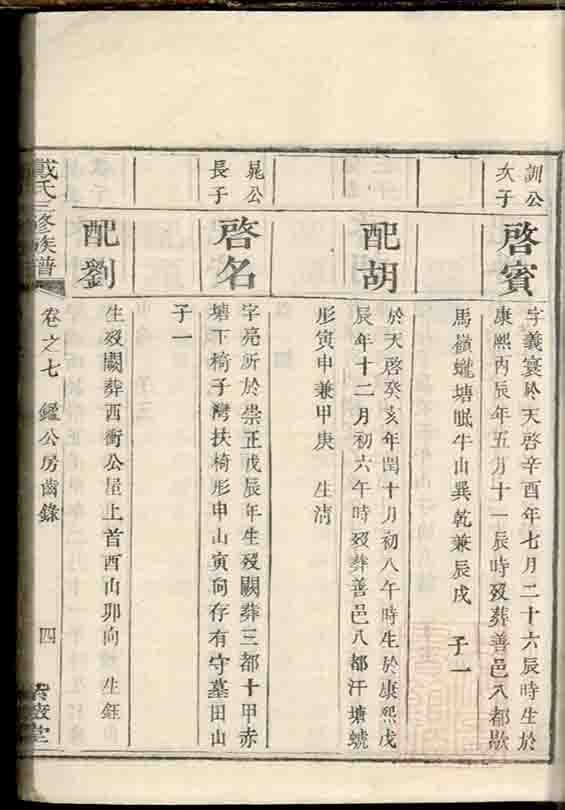 訓公
次子
啓賓
字義寰於天啓辛酉年七月二十六辰時生於
康熙丙辰年五月十一辰時歿葬善邑八都歇
馬嶺蠬塘眠牛山巽乾兼辰戌 子一
配胡
於天啓癸亥年閏十月初八午時生於康熙戊
辰年十二月初六午時歿葬善邑八都汗塘虓
形寅申兼甲庚 生淸
晁公
長子
啓名
字亮所於崇正戊辰年生歿闕葬三都十甲赤
塘下椅子灣扶椅形申山寅向存有守墓田山
子一
配劉
生歿闕葬西衝公屋上首酉山卯向 生鈺
戴氏三修族譜
卷之七 鑑公房齒錄
四